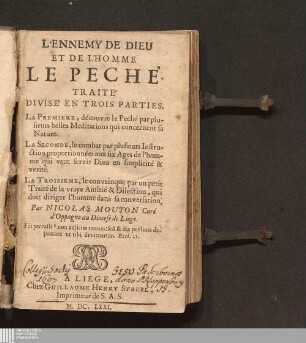 L'ENNEMY DE DIEU
ET DE L'HOMME
LE PECHÉ
TRAITÉ
DIVISÉ EN TROIS PARTIES.
LA PREMIERE, découvre le Peché par plu-
sieurs belles Meditations qui concernent sa
Nature.
LA SECONDE, le combat par plusieurs Instru-
ctions proportionnées aux six Ages de l'hom-
me qui veut servir Dieu en simplicité &
verité.
LA TROISIEME, le convainque par un petit
Traité de la vraye Amitié & Dilection, qui
doit diriger l'homme dans sa conversation,
Par NICOLAS MOUTON Curé
d'Oppagne au Diocese de Liege.
A LIEGE,
Chez GUILLAUME HENRY STREEL
Imprimeur de S. A. S.
M. DC. LXXI.